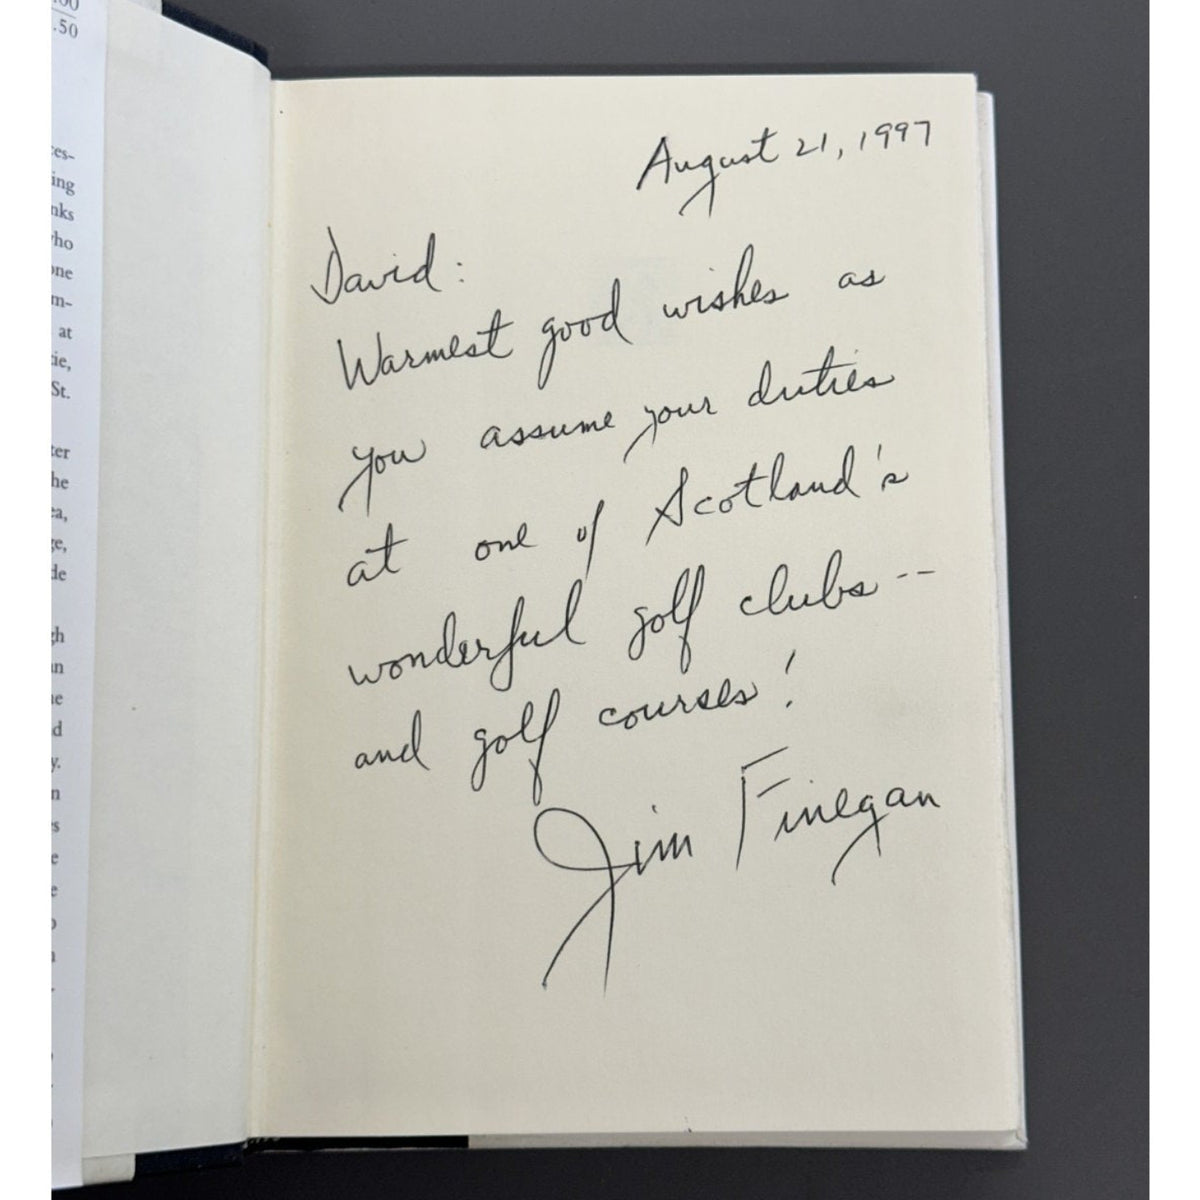 .50
es-
ing
nks
who
one
m-
at
tie,
St.
ter
he
ea,
ge,
de
gh
an
ne
d
y.
n
es
e
e
August 21, 1997
David:
Warmest good wishes as
you assume your duties
at one of Scotland's
wonderful golf clubs --
and golf courses!
Jim Finegan